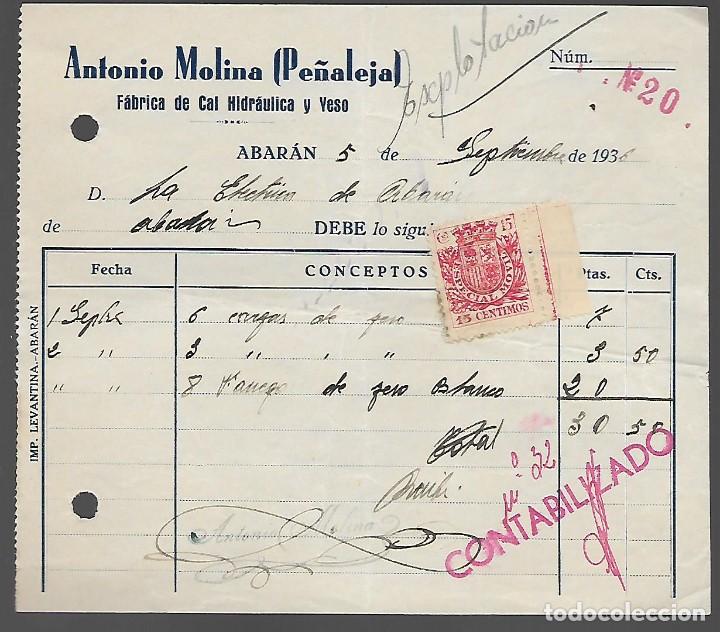 Antonio Molina (Peñaleja)
Fábrica de Cal Hidráulica y Yeso
Explotacion
Núm.
Nº 20
ABARÁN 5 de Septiembre de 1936
D. La Electrica de Abarán
de Abarán DEBE lo sigui
Fecha CONCEPTOS Ptas. Cts.
ESPECIAL MOVIL
15
15 CENTIMOS
1 Sepbre 6 cargas de yeso 7
2 " 3 " " " 3 50
" " 8 Fanegas de yeso Blanco 20
Total 30 50
Nº 32
Recibí
CONTABILIZADO
Antonio Molina
IMP. LEVANTINA.-ABARÁN
todocoleccion
todocoleccion.net